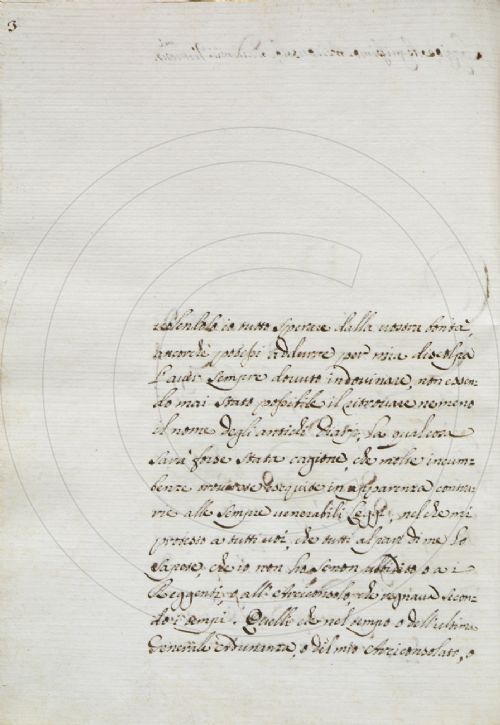 3
volendolo io tutto sperare dalla vostra bontà,
ancorché potessi addurre per mia discolpa
l'aver sempre dovuto indovinare, non essen-
do mai stato possibile il ritrovare nemeno
il nome degli antichi Diarj, la qual cosa
sarà forse stata cagione, che molte incum-
benze in apparenza contra-
rie alle sempre venerabili Leggi, nel che mi
protesto a tutti voi, che tutti al par di me lo
sapete, che io non ho se non ubbidito, o a i
Reggenti, o all' Arciconsolo, che regnava secon-
do i tempi. Quello che nel tempo o dell'ultima
Generale Adunanza, o del mio Arciconsolato, o